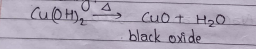 Cu(OH)₂ —Δ→ CuO + H₂O
black oxide